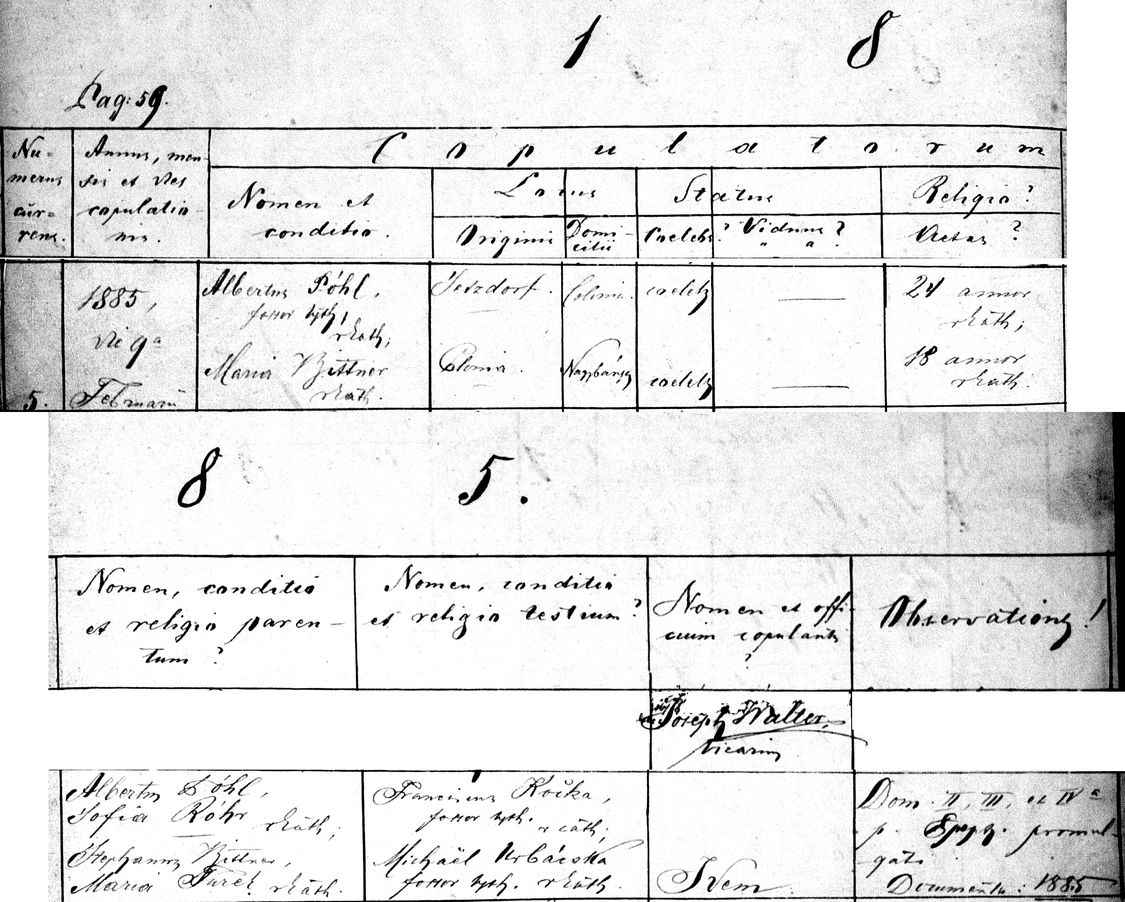 1 8
Pag: 59.
Nu-
merus
cur-
rens.
Annus, men
sis et dies
copulatio-
nis.
Copulatorum
Nomen et
conditio.
Locus
Originis
Domi-
cilii
Status
Caelebs?
Viduus?
" "
Religio?
Aetas?
5.
1885,
die 9a
Februarii
Albertus Pöhl,
fossor
rkath;
Maria Bittner
rkath.
Colonia.
Colonia.
Nagybánya
caelebs
caelebs
24 annor
rkath;
18 annor
rkath.
8 5.
Nomen, conditio
et religio paren-
tum?
Nomen, conditio
et religio testium?
Nomen et offi-
cium copulantis
?
Observationes!
Joseph Walter,
Vicarius
Albertus Pöhl,
Sofia Röhr rkath;
Stephanus Bittner,
Maria Turek rkath.
Franciscus Kočka,
fossor
rcath;
Michaël Urbácska
fossor rkath.
Idem.
Dom. II, III, et IVa
p. Epiph. promul-
gati
Documenta: 1885